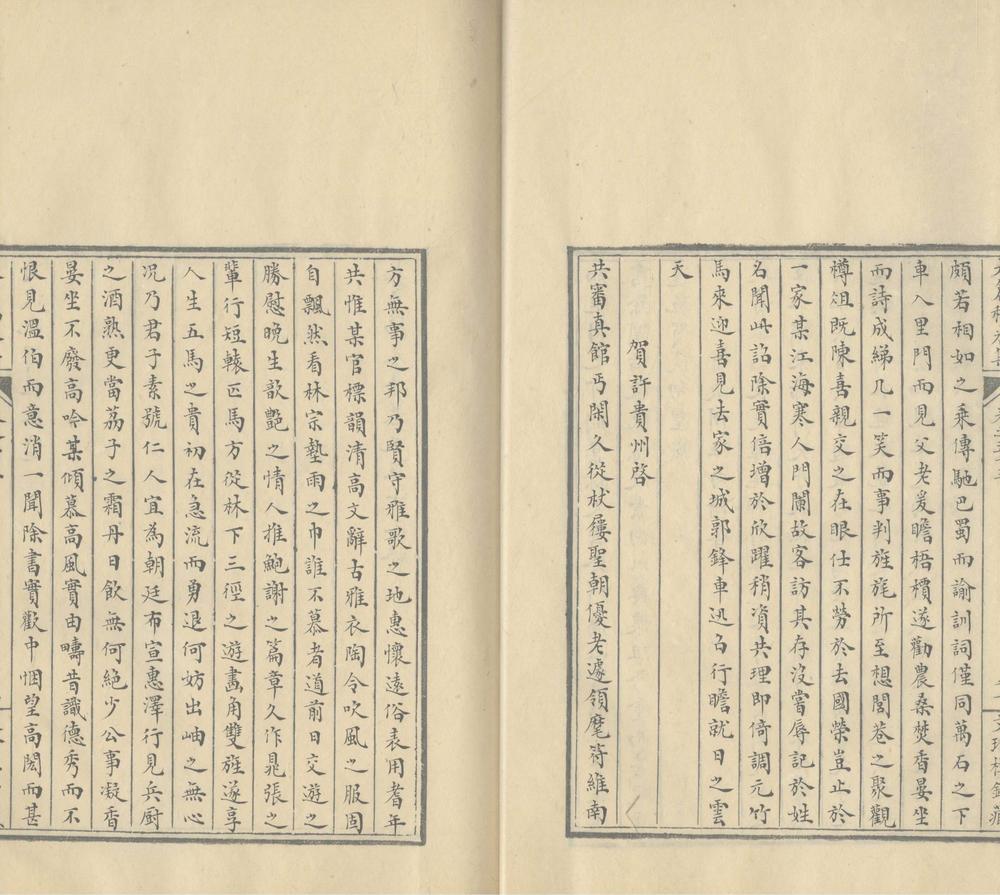 頗若相如之乘傳馳巴蜀而諭訓詞僅同萬石之下
車入里門而見父老爰瞻梧檟遂勸農桑焚香晏坐
而詩成綈几一笑而事判旌旄所至想閭巷之聚觀
樽俎既陳喜親交之在眼仕不勞於去國榮豈止於
一家某江海寒人門闌故客訪其存沒嘗辱記於姓
名聞此詔除實倍增於欣躍稍資共理即倚調元竹
馬來迎喜見去家之城郭鋒車迅召行瞻就日之雲
天
賀許貴州啓
共審真館丐閑久從杖屨聖朝優老遽領麾符維南
方無事之邦乃賢守雅歌之地惠懷遠俗表用耆年
共惟某官標韻清高文辭古雅衣陶令吹風之服固
自飄然看林宗墊雨之巾誰不慕者道前日交遊之
勝慰晚生歆艷之情人推鮑謝之篇章久作晁張之
輩行短轅匹馬方從林下三徑之遊畫角雙旌遂享
人生五馬之貴初在急流而勇退何妨出岫之無心
况乃君子素號仁人宜為朝廷布宣惠澤行見兵厨
之酒熟更當荔子之霜丹日飲無何絶少公事凝香
晏坐不廢高吟某傾慕高風實由疇昔識德秀而不
恨見溫伯而意消一聞除書實歡中悃望高閎而甚